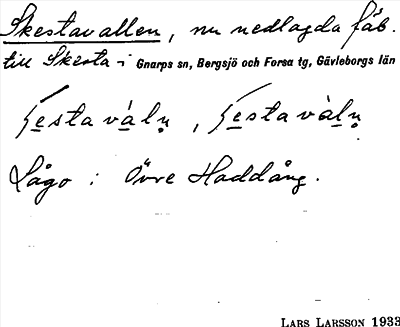 Skestavallen, nu nedlagda fäb.
till Skesta i Gnarps sn, Bergsjö och Forsa tg, Gävleborgs län
Lågo : Övre Haddång.
LARS LARSSON 1933